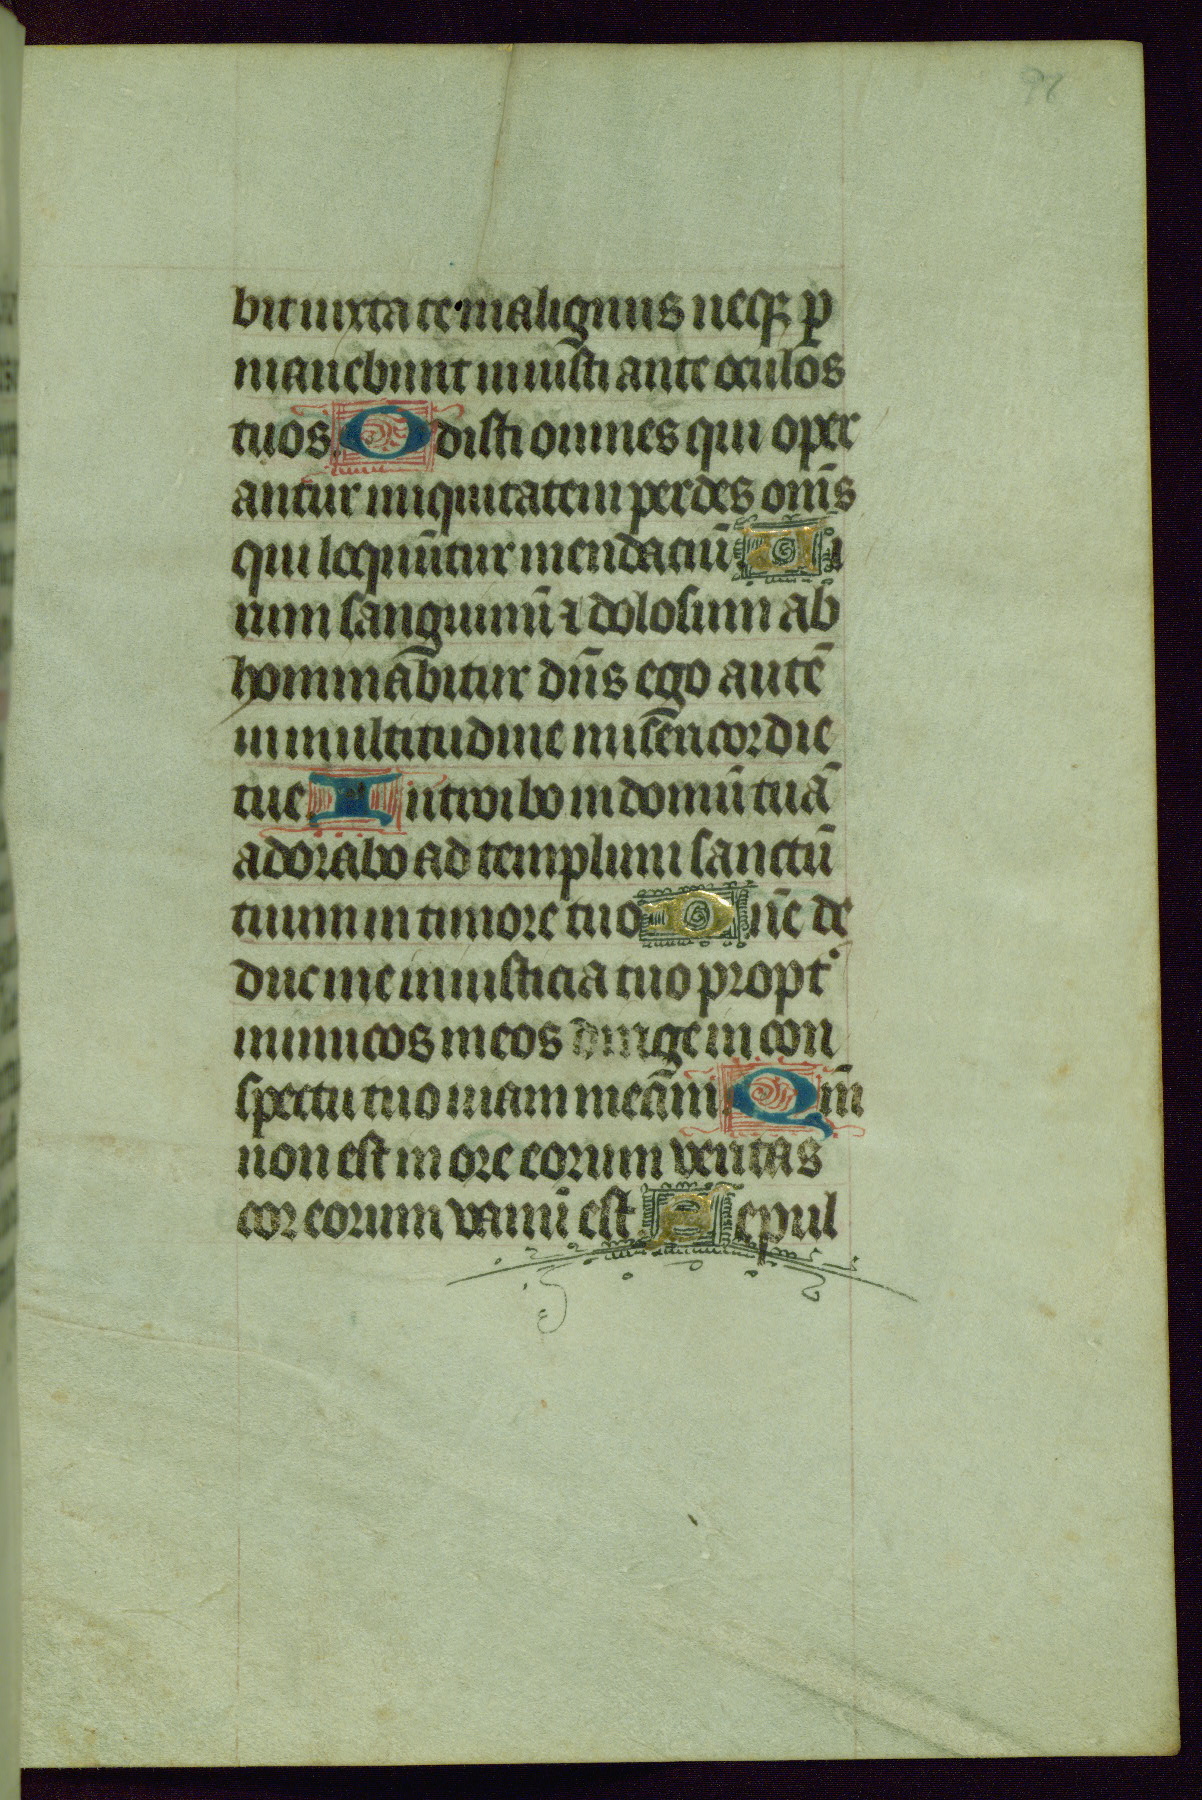 98
bit iuxta te malignus neqꝫ ꝑ
manebunt iniusti ante oculos
tuos Odisti omnes qui oper
antur iniquitatem perdes om̄s
qui loquūtur mendaciū Ui
rum sanguinū ⁊ dolosum ab
hominabitur dn̄s ego autē
in multitudine misericordie
tue Introibo in domū tuā
adorabo ad templum sanctū
tuum in timore tuo Dn̄e de
duc me in iusticia tuo propt᷑
inimicos meos dirige in con
spectu tuo uiam meam Qm̄
non est in ore eorum veritas
cor eorum vanū est Sepul